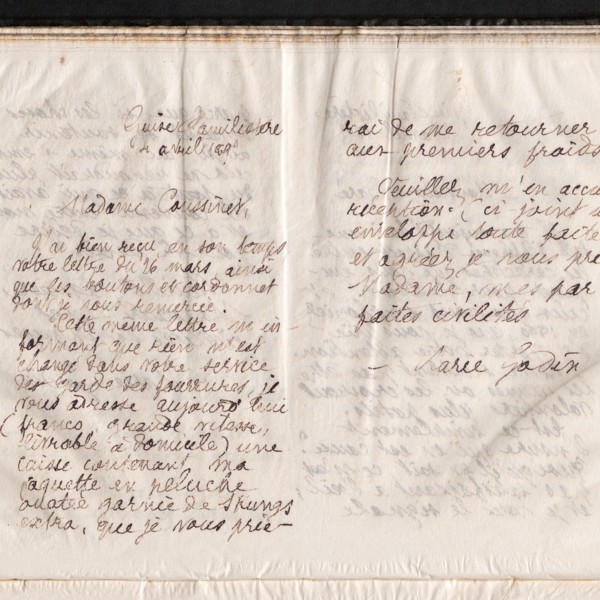 Guise Familistère
4 avril
Madame Coussinet,
J'ai bien reçu en son temps
votre lettre du 16 mars, ainsi
que les boutons et cordonnet
dont je vous remercie.
Cette même lettre m'in-
formant que rien n'est
changé dans votre service
de garde des fourrures, je
vous adresse aujourd'hui
(franco, grande vitesse,
livrable à domicile) une
caisse contenant ma
jaquette en peluche
ouatée garnie de Skungs
extra, que je vous prie-
rai de me retourner
aux premiers froids.
Veuillez m'en accu
réception (ci joint
enveloppe toute faite
et agréer je vous prie
Madame, mes par
faites civilités
— Marie Godin